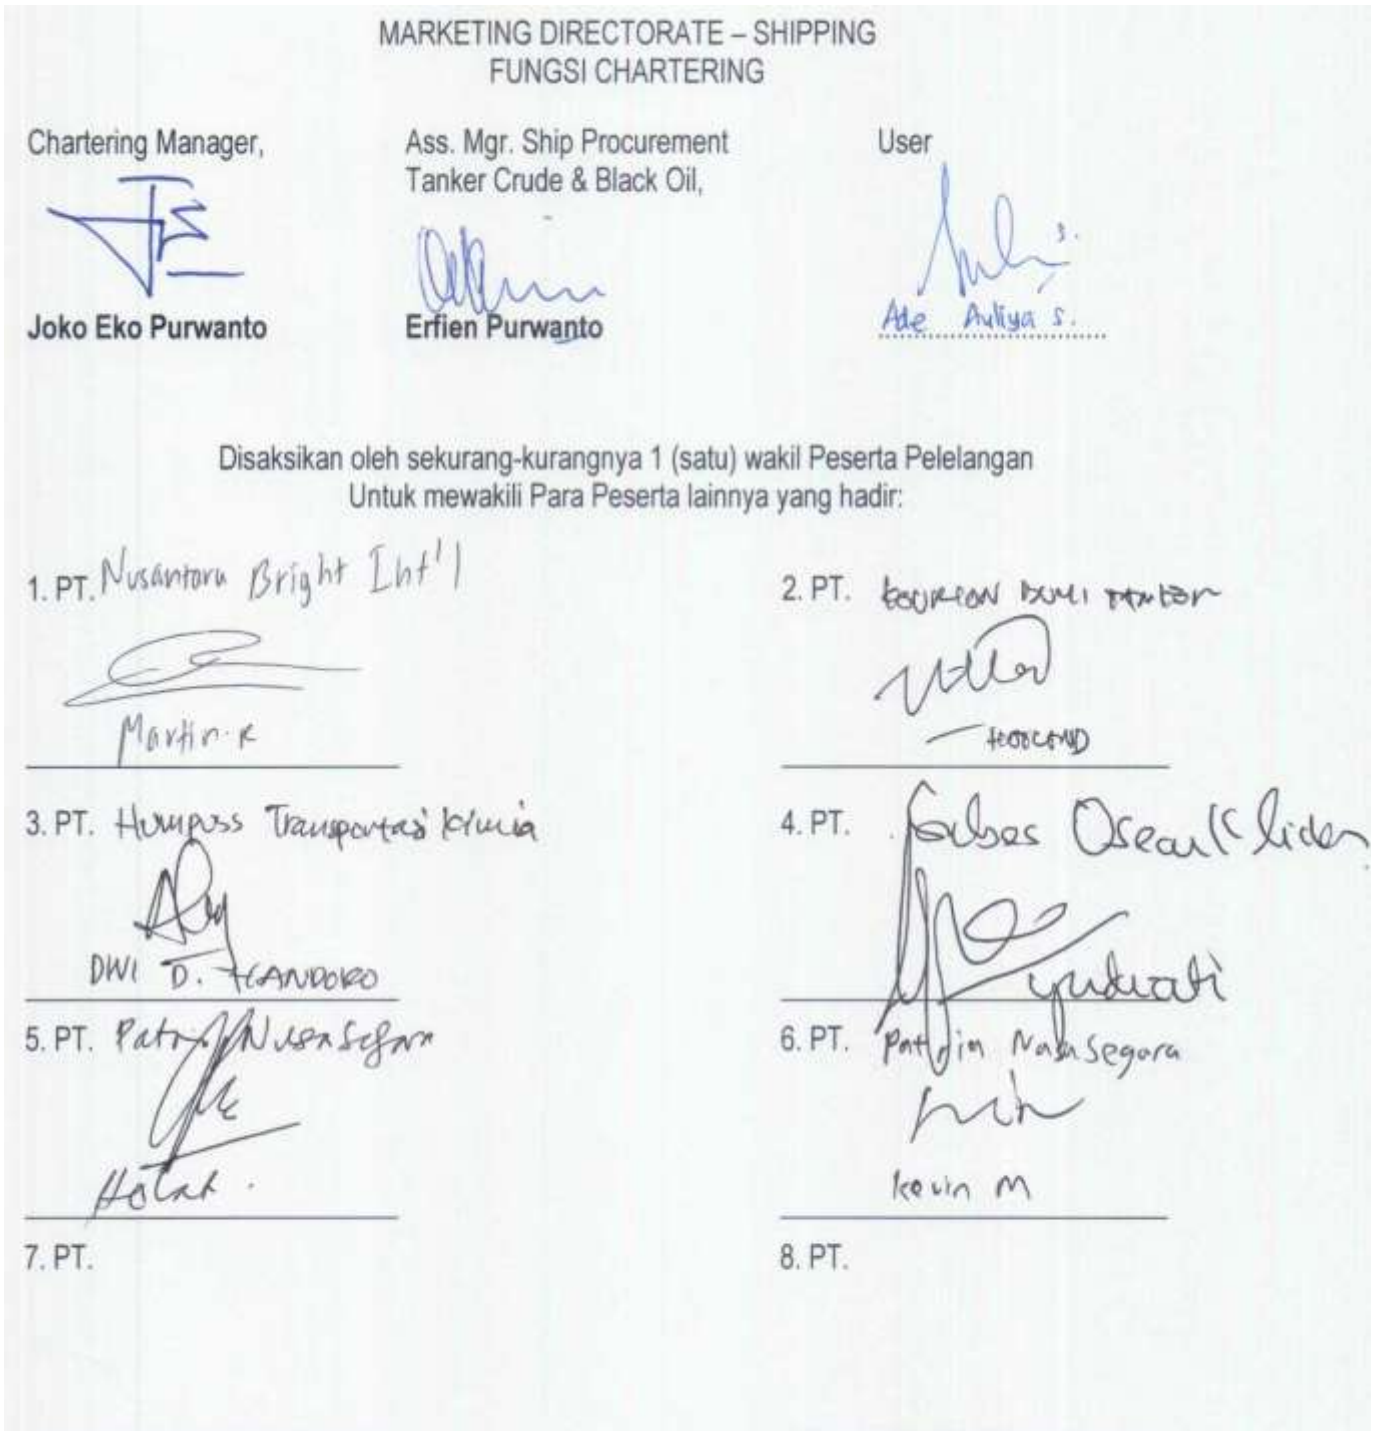 MARKETING DIRECTORATE – SHIPPING
FUNGSI CHARTERING
Chartering Manager,
Ass. Mgr. Ship Procurement
Tanker Crude & Black Oil,
User
Joko Eko Purwanto
Erfien Purwanto
Ade Auliya S.
Disaksikan oleh sekurang-kurangnya 1 (satu) wakil Peserta Pelelangan
Untuk mewakili Para Peserta lainnya yang hadir:
1. PT. Nusantara Bright Int'l
Martin. R
2. PT.
3. PT. Humpuss Transportasi Kimia
DWI D. HANDOKO
4. PT.
5. PT. Nusa Segara
6. PT. Nusa Segara
Kevin M
7. PT.
8. PT.